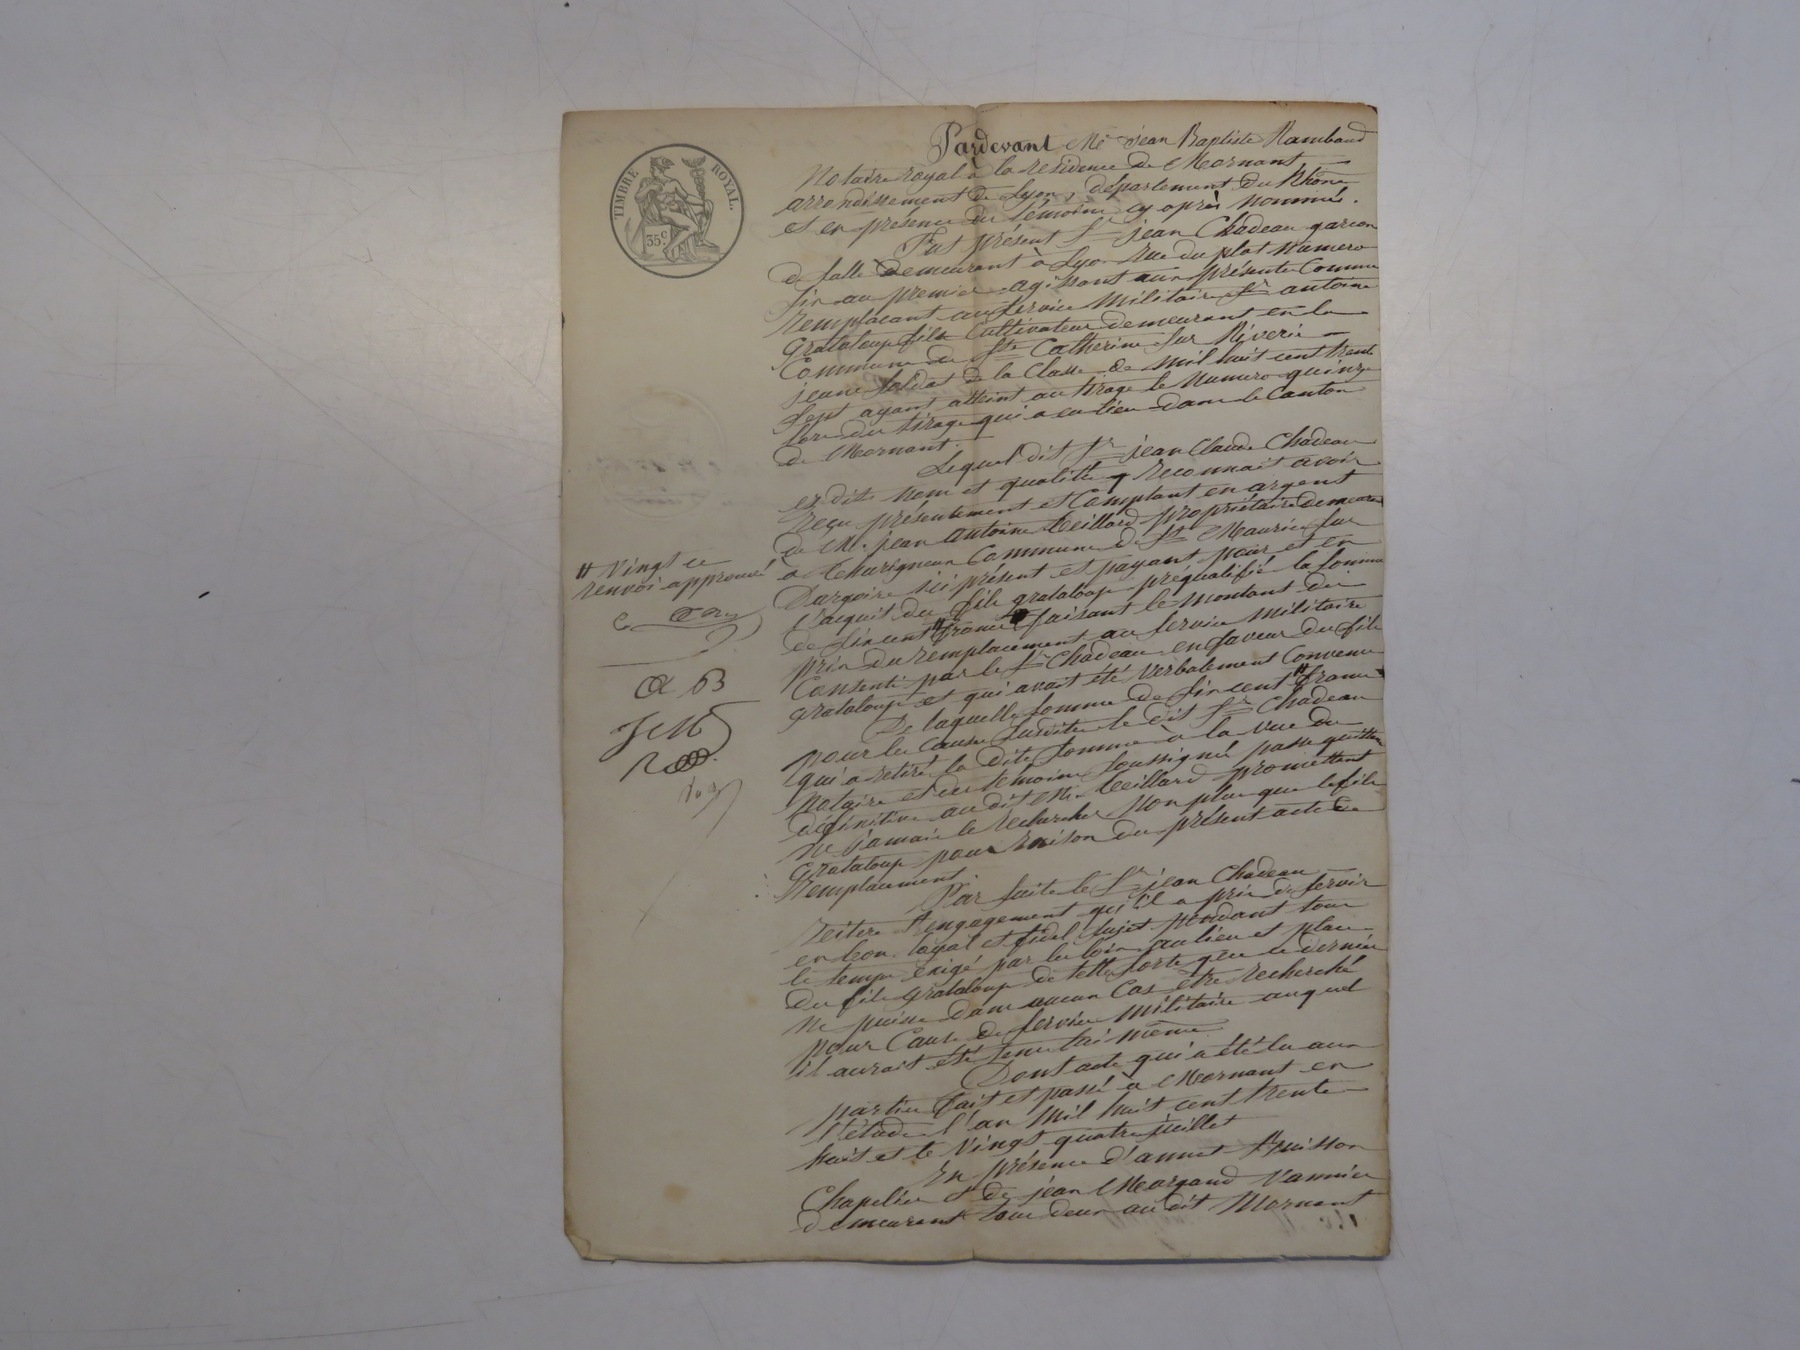 TIMBRE ROYAL.
35 c.
Pardevant Me jean Baptiste Rambaud
Notaire royal à la residence de Mornant
arrondissement de Lyon, département du Rhône
et en présence des témoins cy après nommés.
Fut présent Sr jean Chadeau garcon
de salle demeurant à Lyon rue du plat numero
six au premier agissant aux présentes Comme
remplacant au service militaire Sr antoine
Grataloup fils Cultivateur demeurant en la
Commune de Ste Catherine sur Riverie
jeune soldat de la Classe de mil huit cent trente
sept ayant atteint au tirage le numero quinze
lors du tirage qui a eu lieu dans le Canton
de Mornant.
Lequel dit Sr jean Claude Chadeau
es dits nom et qualités reconnait avoir
reçu présentement et Comptant en argent
de M. jean antoine Teillard propriétaire demeurant
a Commune de St Maurice sur
Dargoire ici présent et payant pour et en
l'acquit du fils grataloup préqualifié la somme
de six cent # francs faisant le montant du
prix du remplacement au service militaire
Consenti par le Sr Chadeau en faveur du fils
grataloup et qui avait été verbalement Convenu
De laquelle somme de six cent # francs
pour les causes susdites le dit Sr Chadeau
qui a retiré la dite somme à la vue du
Notaire et des témoins soussignés passe quittance
définitive au dit M. Teillard promettant
ne jamais le rechercher non plus que le fils
Grataloup pour raison du présent acte de
remplacement.
Par suite le Sr jean Chadeau
reitere l'engagement qu'il a pris de servir
en bon, loyal et fidel sujet pendant tout
le temps exigé par les lois au lieu et place
du fils grataloup de telle sorte que ce dernier
ne puisse dans aucun Cas être recherché
pour Cause de service militaire auquel
il aurait été tenu lui même.
Dont acte qui a été lu aux
parties fait et passé à Mornant en
l'étude l'an mil huit cent trente
huit et le vingt quatre juillet
En présence d'annet Buisson
Chapelier et de jean Margand Vannier
demeurant tous deux au dit Mornant
# Vingt ce
renvoi approuvé